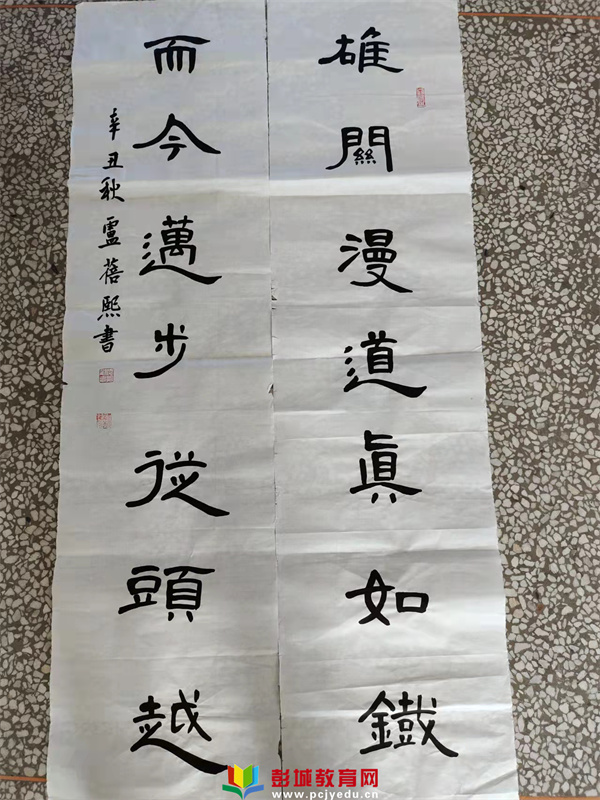 雄關漫道真如鐵
而今邁步從頭越
辛丑秋盧蓓熙書
彭城教育网
www.pcjyedu.cn